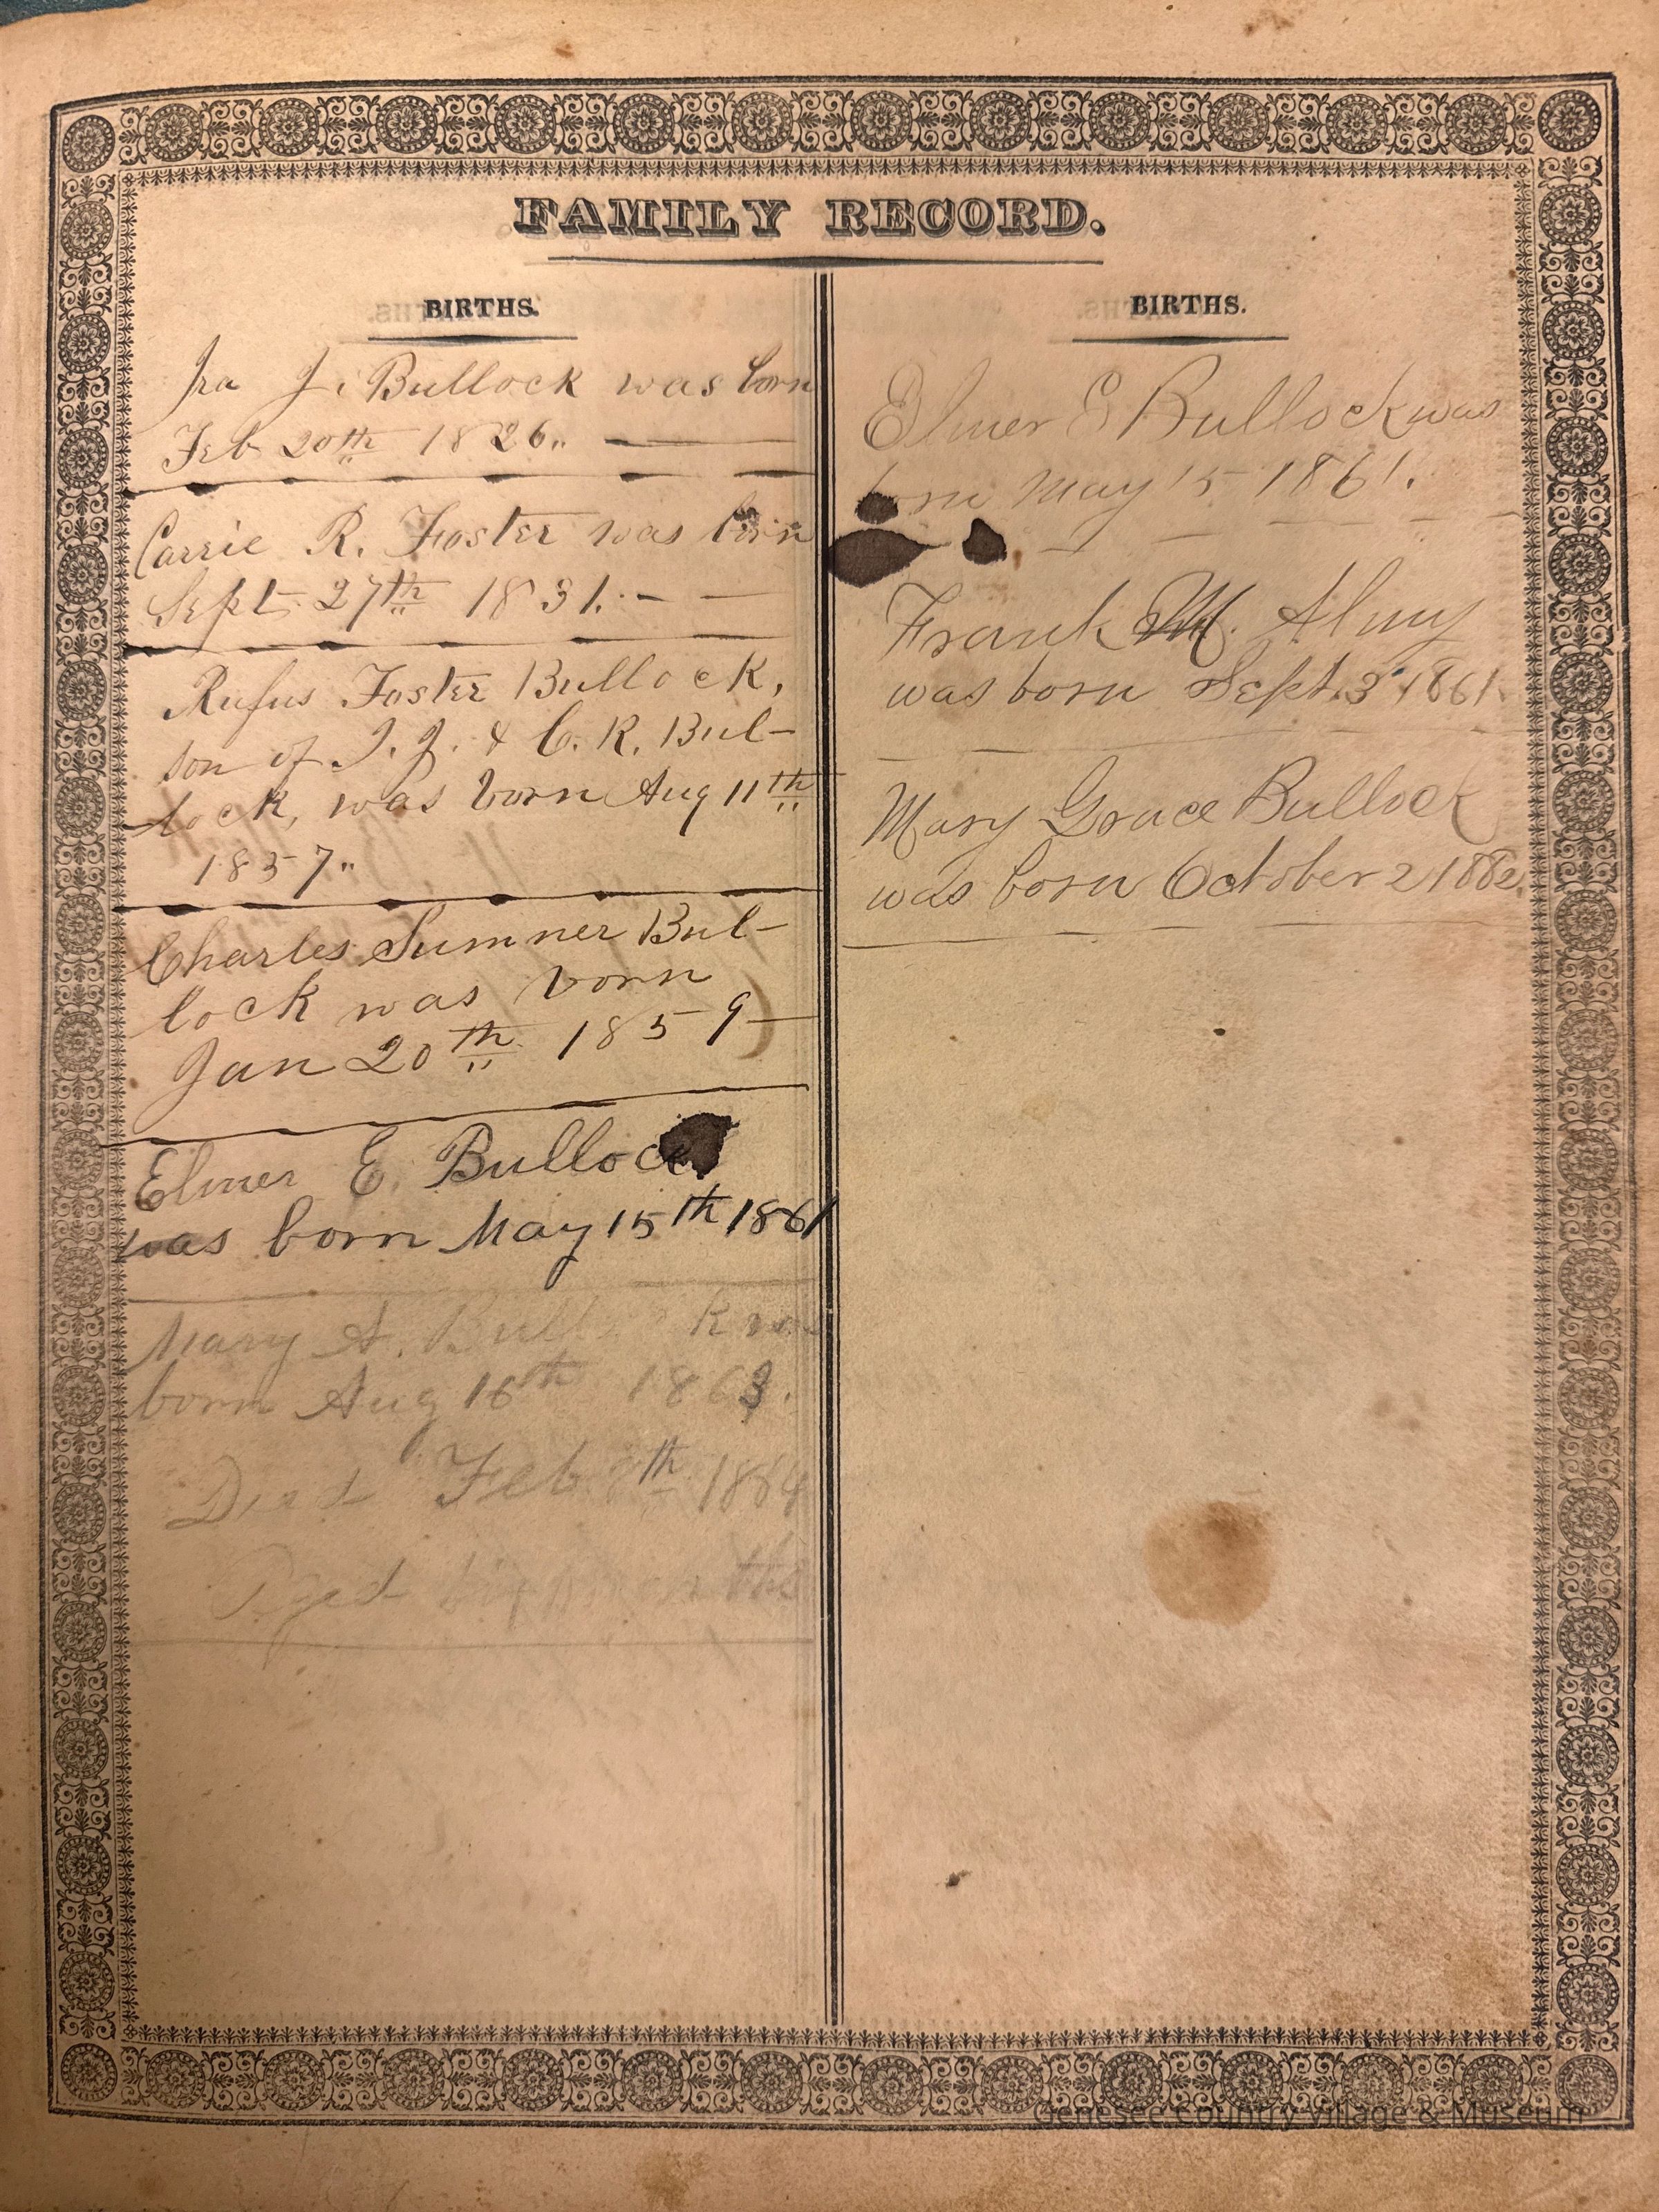 FAMILY RECORD.
BIRTHS.
Ira J. Bullock was born
Feb 20th 1826.
Carrie R. Foster was born
Sept. 27th 1831.
Rufus Foster Bullock,
son of I. J. & C. R. Bul-
lock, was born Aug 11th
1857
Charles Sumner Bul-
lock was born
Jan 20th 1859
Elmer E. Bullock
was born May 15th 1861
Mary A. Bullock was
born Aug 16th 1863.
Died Feb 8th 1864
Aged months
BIRTHS.
Elmer E Bullock was
born May 15 1861.
Frank M. Almy
was born Sept. 3 1861.
Mary Grace Bullock
was born October 2 1882.
Genesee Country Village & Museum